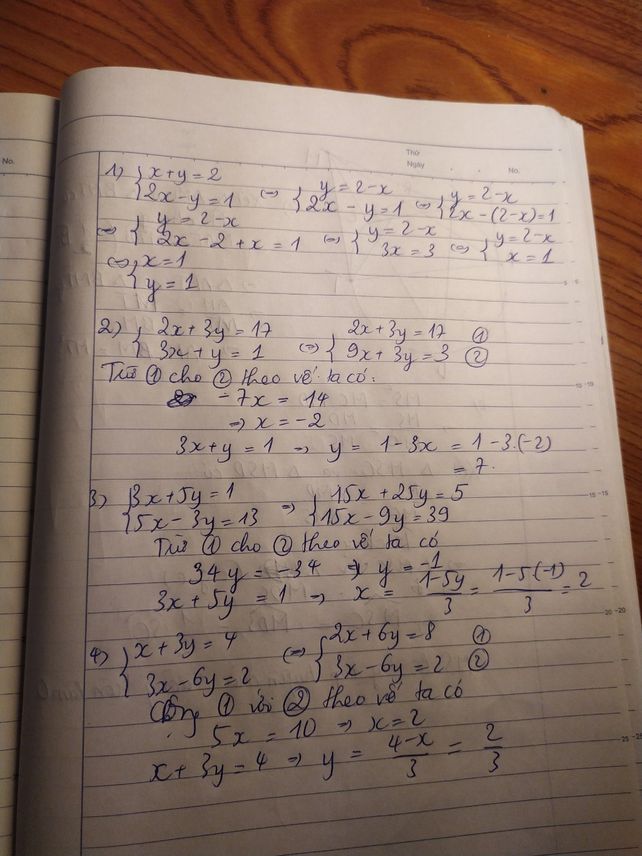 Thứ
Ngày
No.
No.
1) { x+y=2
2x-y=1 ⇔ { y=2-x
2x-y=1 ⇔ { y=2-x
2x-(2-x)=1
⇔ { y=2-x
2x-2+x=1 ⇔ { y=2-x
3x=3 ⇔ { y=2-x
x=1
⇔ { x=1
y=1
2) { 2x+3y=17
3x+y=1 ⇔ { 2x+3y=17 ①
9x+3y=3 ②
Trừ ① cho ② theo vế ta có:
-7x = 14
⇒ x = -2
3x+y=1 ⇒ y = 1-3x = 1-3.(-2)
= 7.
3) { 3x+5y=1
5x-3y=13 ⇒ { 15x+25y=5
15x-9y=39
Trừ ① cho ② theo vế ta có
34y = -34 ⇒ y = -1
3x+5y = 1 ⇒ x = (1-5y)/3 = (1-5(-1))/3 = 2
4) { x+3y=4
3x-6y=2 ⇔ { 2x+6y=8 ①
3x-6y=2 ②
Cộng ① với ② theo vế ta có
5x = 10 ⇒ x=2
x+3y=4 ⇒ y = (4-x)/3 = 2/3